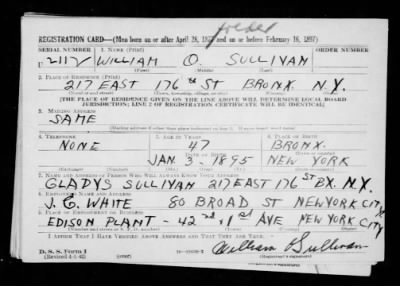 folded
REGISTRATION CARD—(Men born on or after April 28, 1877 and on or before February 16, 1897)
SERIAL NUMBER 1. NAME (Print) ORDER NUMBER
U 2112 WILLIAM O. SULLIVAN
(First) (Middle) (Last)
2. PLACE OF RESIDENCE (Print)
217 EAST 176th ST BRONX. N.Y.
(Number and street) (Town, township, village, or city) (County) (State)
[THE PLACE OF RESIDENCE GIVEN ON THE LINE ABOVE WILL DETERMINE LOCAL BOARD
JURISDICTION; LINE 2 OF REGISTRATION CERTIFICATE WILL BE IDENTICAL]
3. MAILING ADDRESS
SAME
[Mailing address if other than place indicated on line 2. If same insert word same]
4. TELEPHONE 5. AGE IN YEARS 6. PLACE OF BIRTH
NONE 47 BRONX.
JAN. 3. 1895 NEW YORK
7. NAME AND ADDRESS OF PERSON WHO WILL ALWAYS KNOW YOUR ADDRESS
GLADYS SULLIVAN 217 EAST 176 ST BX. N.Y.
J. G. WHITE 80 BROAD ST NEW YORK CITY
9. PLACE OF EMPLOYMENT OR BUSINESS
EDISON PLANT - 42nd & 1st AVE NEW YORK CITY
I AFFIRM THAT I HAVE VERIFIED ABOVE ANSWERS AND THAT THEY ARE TRUE.
D. S. S. Form 1
(Revised 4-1-42)
William O Sullivan